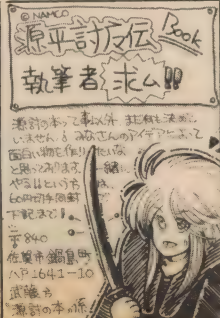 © NAMCO
源平討魔伝 Book
執筆者 求ム!!
源討の本って事以外 まだ何も決めて
いません。みなさんのアイデアによって
面白い物を作りたいな
と思っております。一緒に
やるぞという方は、
60円切手同封
下記まで!
〒840
佐賀市鍋島町
八戸1641-10
武蔵方
"源討の本"係